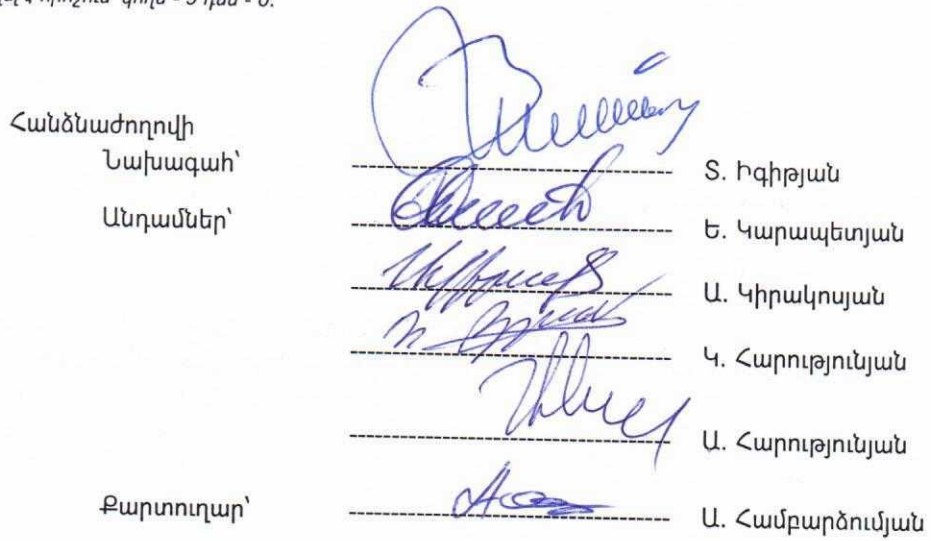 որոշում կողմ - 5 դեմ - 0.
Հանձնաժողովի
Նախագահ՝ Տ. Իգիթյան
Անդամներ՝ Ե. Կարապետյան
Ա. Կիրակոսյան
Կ. Հարությունյան
Ա. Հարությունյան
Քարտուղար՝ Ա. Համբարձումյան